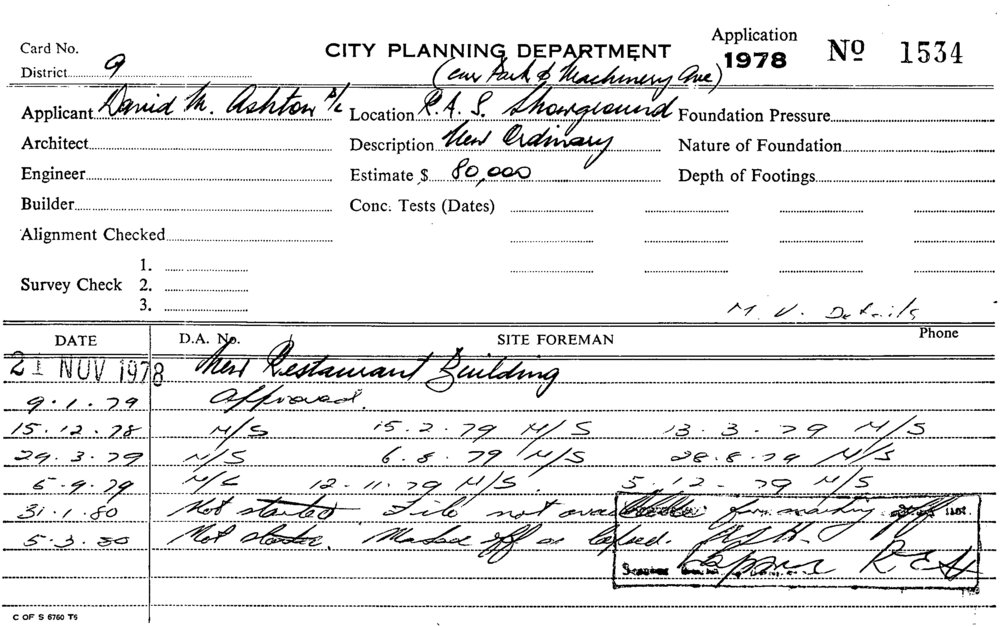 Card No. CITY PLANNING DEPARTMENT Application 1978 No 1534
District 9 (cnr Park & Machinery Ave)
Applicant David M. Ashton P/L Location R.A.S. Showground Foundation Pressure
Architect Description New Ordinary Nature of Foundation
Engineer Estimate $ 80,000 Depth of Footings
Builder Conc. Tests (Dates)
Alignment Checked
1.
Survey Check 2.
3.
M. V. Details
DATE D.A. No. SITE FOREMAN Phone
21 NOV 1978 New Restaurant Building
9.1.79 Approved.
15.12.78 M/S 15.2.79 M/S 13.3.79 M/S
29.3.79 M/S 6.8.79 M/S 28.8.79 M/S
5.9.79 M/S 12.11.79 M/S. 5.12.79 M/S
31.1.80 Not started. File not available for marking off
5.3.80 Not started. Marked off as lapsed.
Lapsed
C OF S 6760 T6